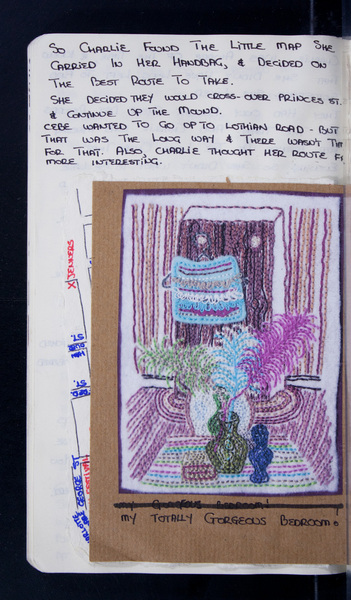 So Charlie Found The Little Map She
Carried In Her Handbag, & Decided On
The Best Route To Take.
She Decided They Would Cross-over Princes St.
& Continue Up The Mound.
Cebe Wanted To Go Up To Lothian Road - But
That Was The Long Way & There Wasn't
For That. Also, Charlie Thought Her Route
More Interesting.
X Jenners
George St
My Totally Gorgeous Bedroom.